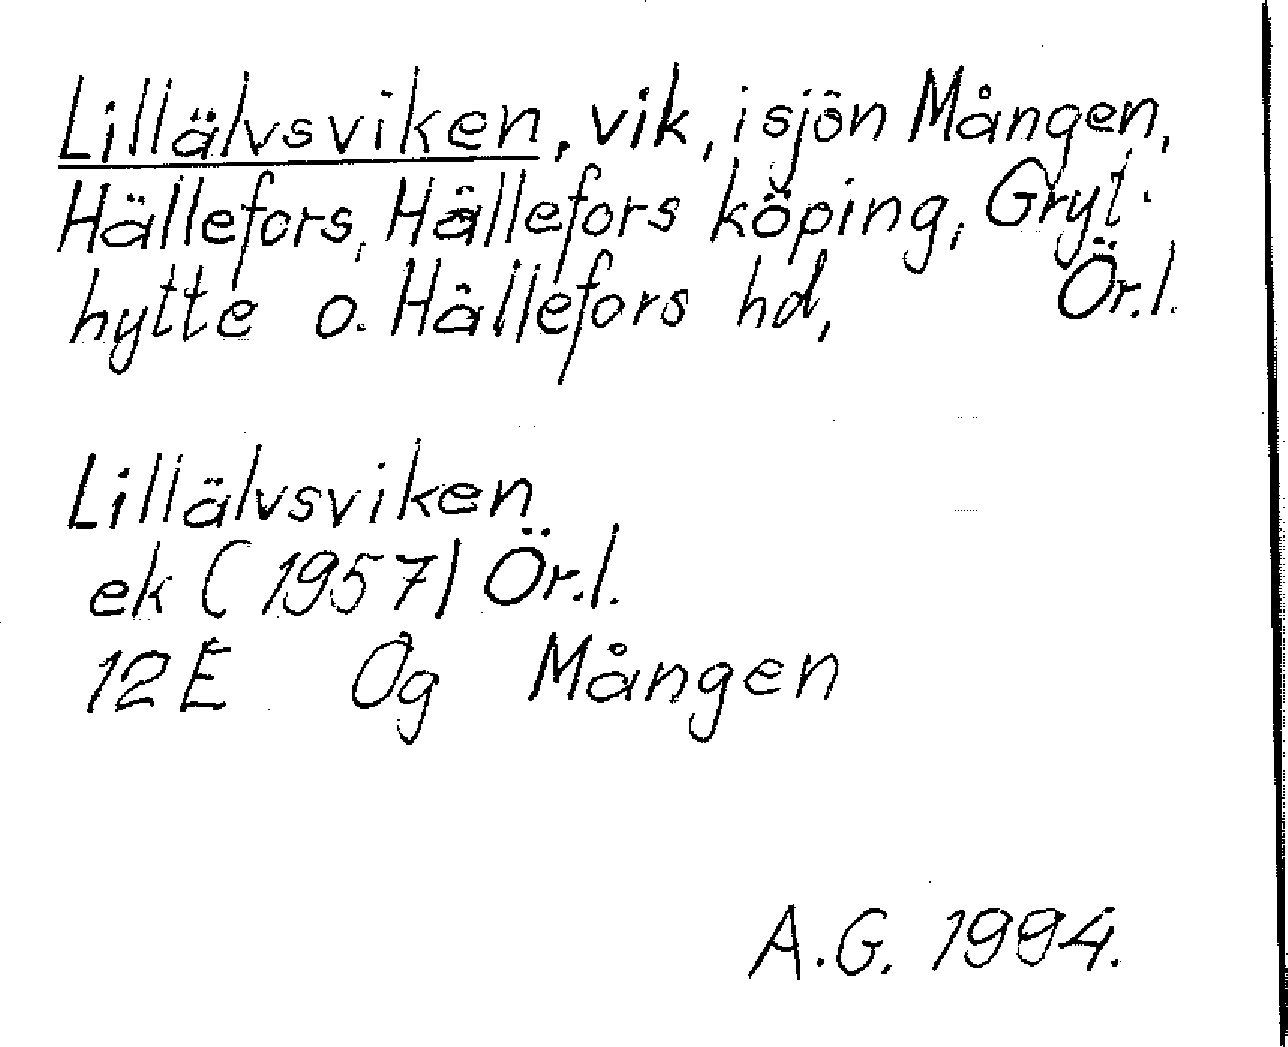 Lillälvsviken, vik, i sjön Mången,
Hällefors, Hällefors köping, Gryt-
hytte o. Hällefors hd, Ör.l.
Lillälvsviken
ek (1957) Ör.l.
12E Og Mången
A.G. 1994.